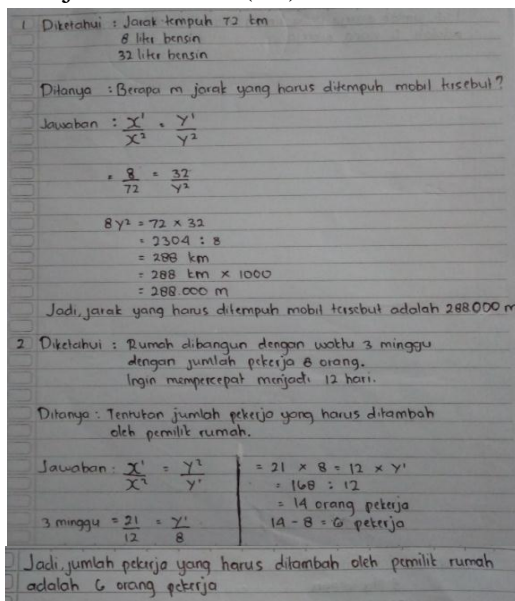 1 Diketahui : Jarak tempuh 72 km
8 liter bensin
32 liter bensin
Ditanya : Berapa m jarak yang harus ditempuh mobil tersebut?
Jawaban : x¹/x² = y¹/y²
= 8/72 = 32/y²
8y² = 72 x 32
= 2304 : 8
= 288 km
= 288 km x 1000
= 288.000 m
Jadi, jarak yang harus ditempuh mobil tersebut adalah 288000 m
2 Diketahui : Rumah dibangun dengan waktu 3 minggu
dengan jumlah pekerja 8 orang.
Ingin mempercepat menjadi 12 hari.
Ditanya : Tentukan jumlah pekerja yang harus ditambah
oleh pemilik rumah.
Jawaban : x¹/x² = y²/y¹
3 minggu = 21/12 = y¹/8
= 21 x 8 = 12 x y¹
= 168 : 12
= 14 orang pekerja
14 - 8 = 6 pekerja
Jadi, jumlah pekerja yang harus ditambah oleh pemilik rumah
adalah 6 orang pekerja